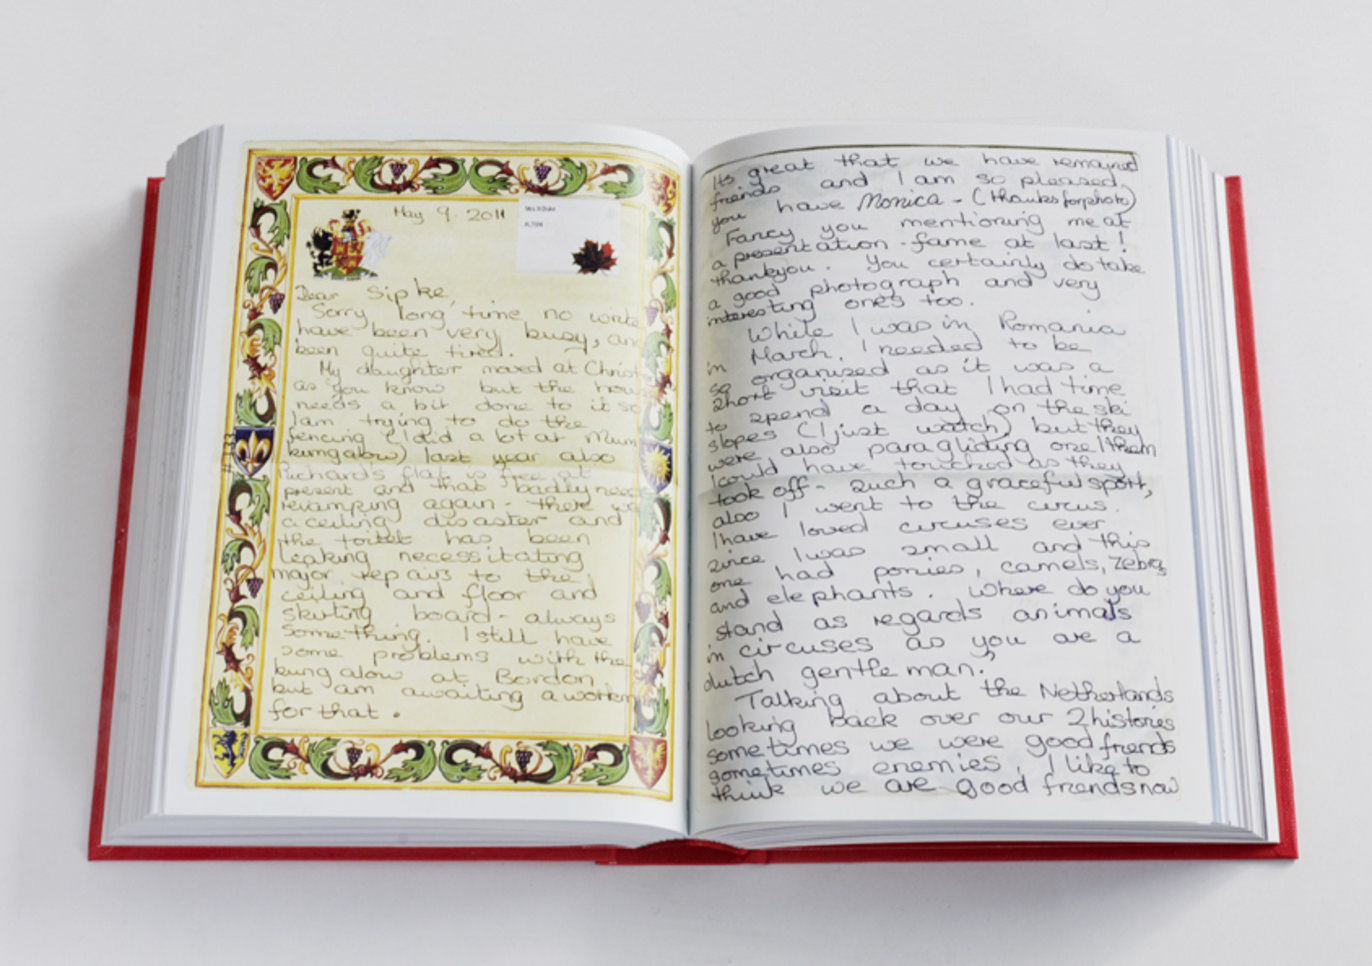 May 9. 2011
Mrs. B Duke
ALTON
Dear Sipke,
Sorry long time no write
have been very busy, and
been quite tired.
My daughter moved at Christ
as you know but the hou
needs a bit done to it so
I am trying to do the
fencing (I did a lot at Mum
bungalow) last year also
Richard's flat is free at
present and that badly need
revamping again - there wa
a ceiling disaster and
the toilet has been
leaking necessitating
major repairs to the
ceiling and floor and
skirting board - always
something. I still have
some problems with the
bungalow at Bordon
but am awaiting a workm
for that.
Its great that we have remained
friends and I am so pleased
you have Monica - (thanks for photo)
Fancy you mentioning me at
a presentation - fame at last!
thankyou. You certainly do take
a good photograph and very
interesting ones too.
While I was in Romania
in March, I needed to be
so organized as it was a
short visit that I had time
to spend a day on the ski
slopes (I just watch) but they
were also paragliding one/them
I could have touched as they
took off - such a graceful sport,
also I went to the circus.
I have loved circuses ever
since I was small and this
one had ponies, camels, Zebras
and elephants. Where do you
stand as regards animals
in circuses as you are a
dutch gentleman.
Talking about the Netherlands
looking back over our 2 histories
sometimes we were good friends
sometimes enemies, I like to
think we are good friends now